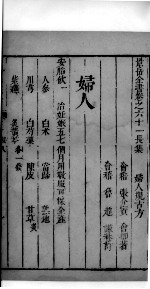 景岳全書卷之六十一長集
婦人規古方
會稽 張介賓 會卿著
會稽 魯超 謙菴訂
婦人
安胎飲一 治妊娠五七個月用數服可保全産
人參 白术 當歸 熟地
川芎 白芍藥 陳皮 甘草炙
紫蘇 炙黄芩各一錢